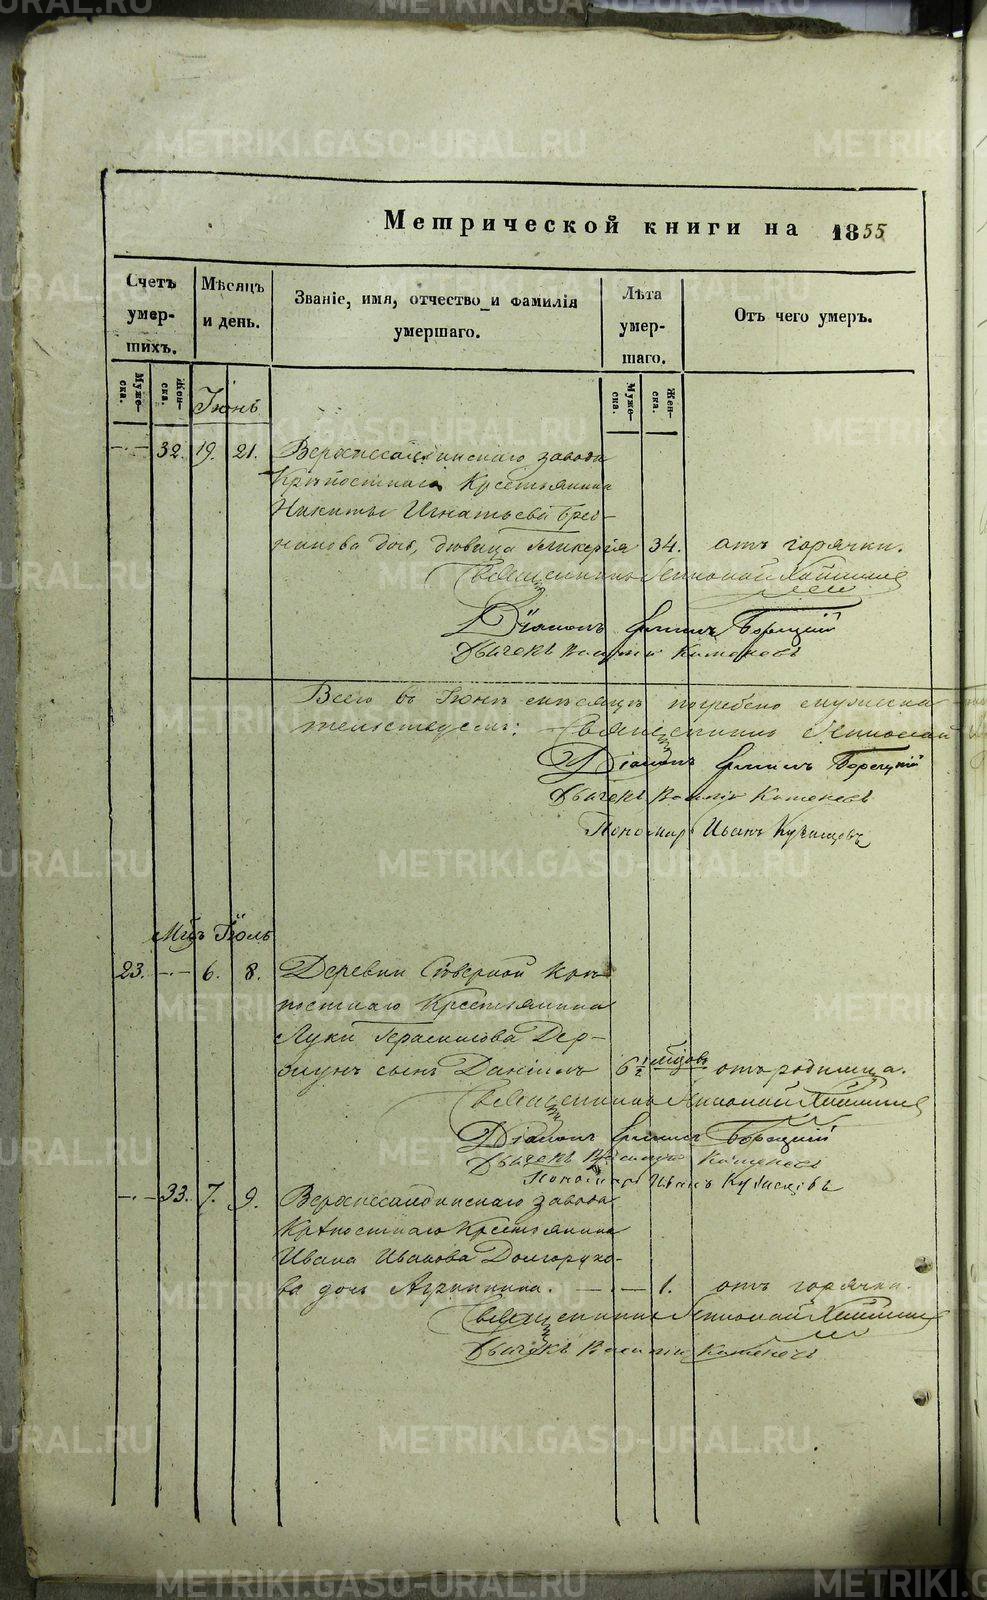 Метрической книги на 1855
Счетъ умер-шихъ.
Мѣсяцъ и день.
Званіе, имя, отчество и фамилія умершаго.
Лѣта умер-шаго.
Отъ чего умеръ.
Муже-ска.
Жен-ска.
Муже-ска.
Жен-ска.
Іюнь
32. 19. 21. Верхнесалдинскаго завода
Крѣпостнаго Крестьянина
Никиты Игнатьева
дочь, дѣвица Гликерія 34. отъ горячки.
Священникъ
Діаконъ Борецкій
Дьячекъ Василій
Всего въ Іюнѣ мѣсяцѣ погребено мужеска
Священникъ
Діаконъ Борецкій
Дьячекъ Василій
Пономарь Иванъ Кузнецовъ
Мцъ Іюль
23. 6. 8. Деревни Сѣверной Крѣ-
постнаго Крестьянина
Луки Герасимова
сынъ Даніилъ 6 1/2 отъ родимца.
Священникъ
Діаконъ Борецкій
Дьячекъ Василій
Пономарь Иванъ Кузнецовъ
33. 7. 9. Верхнесалдинскаго завода
Крѣпостнаго Крестьянина
Ивана Иванова Долгоруко-
ва дочь Агриппина. 1. отъ горячки.
Священникъ
Дьячекъ Василій
METRIKI.GASO-URAL.RU